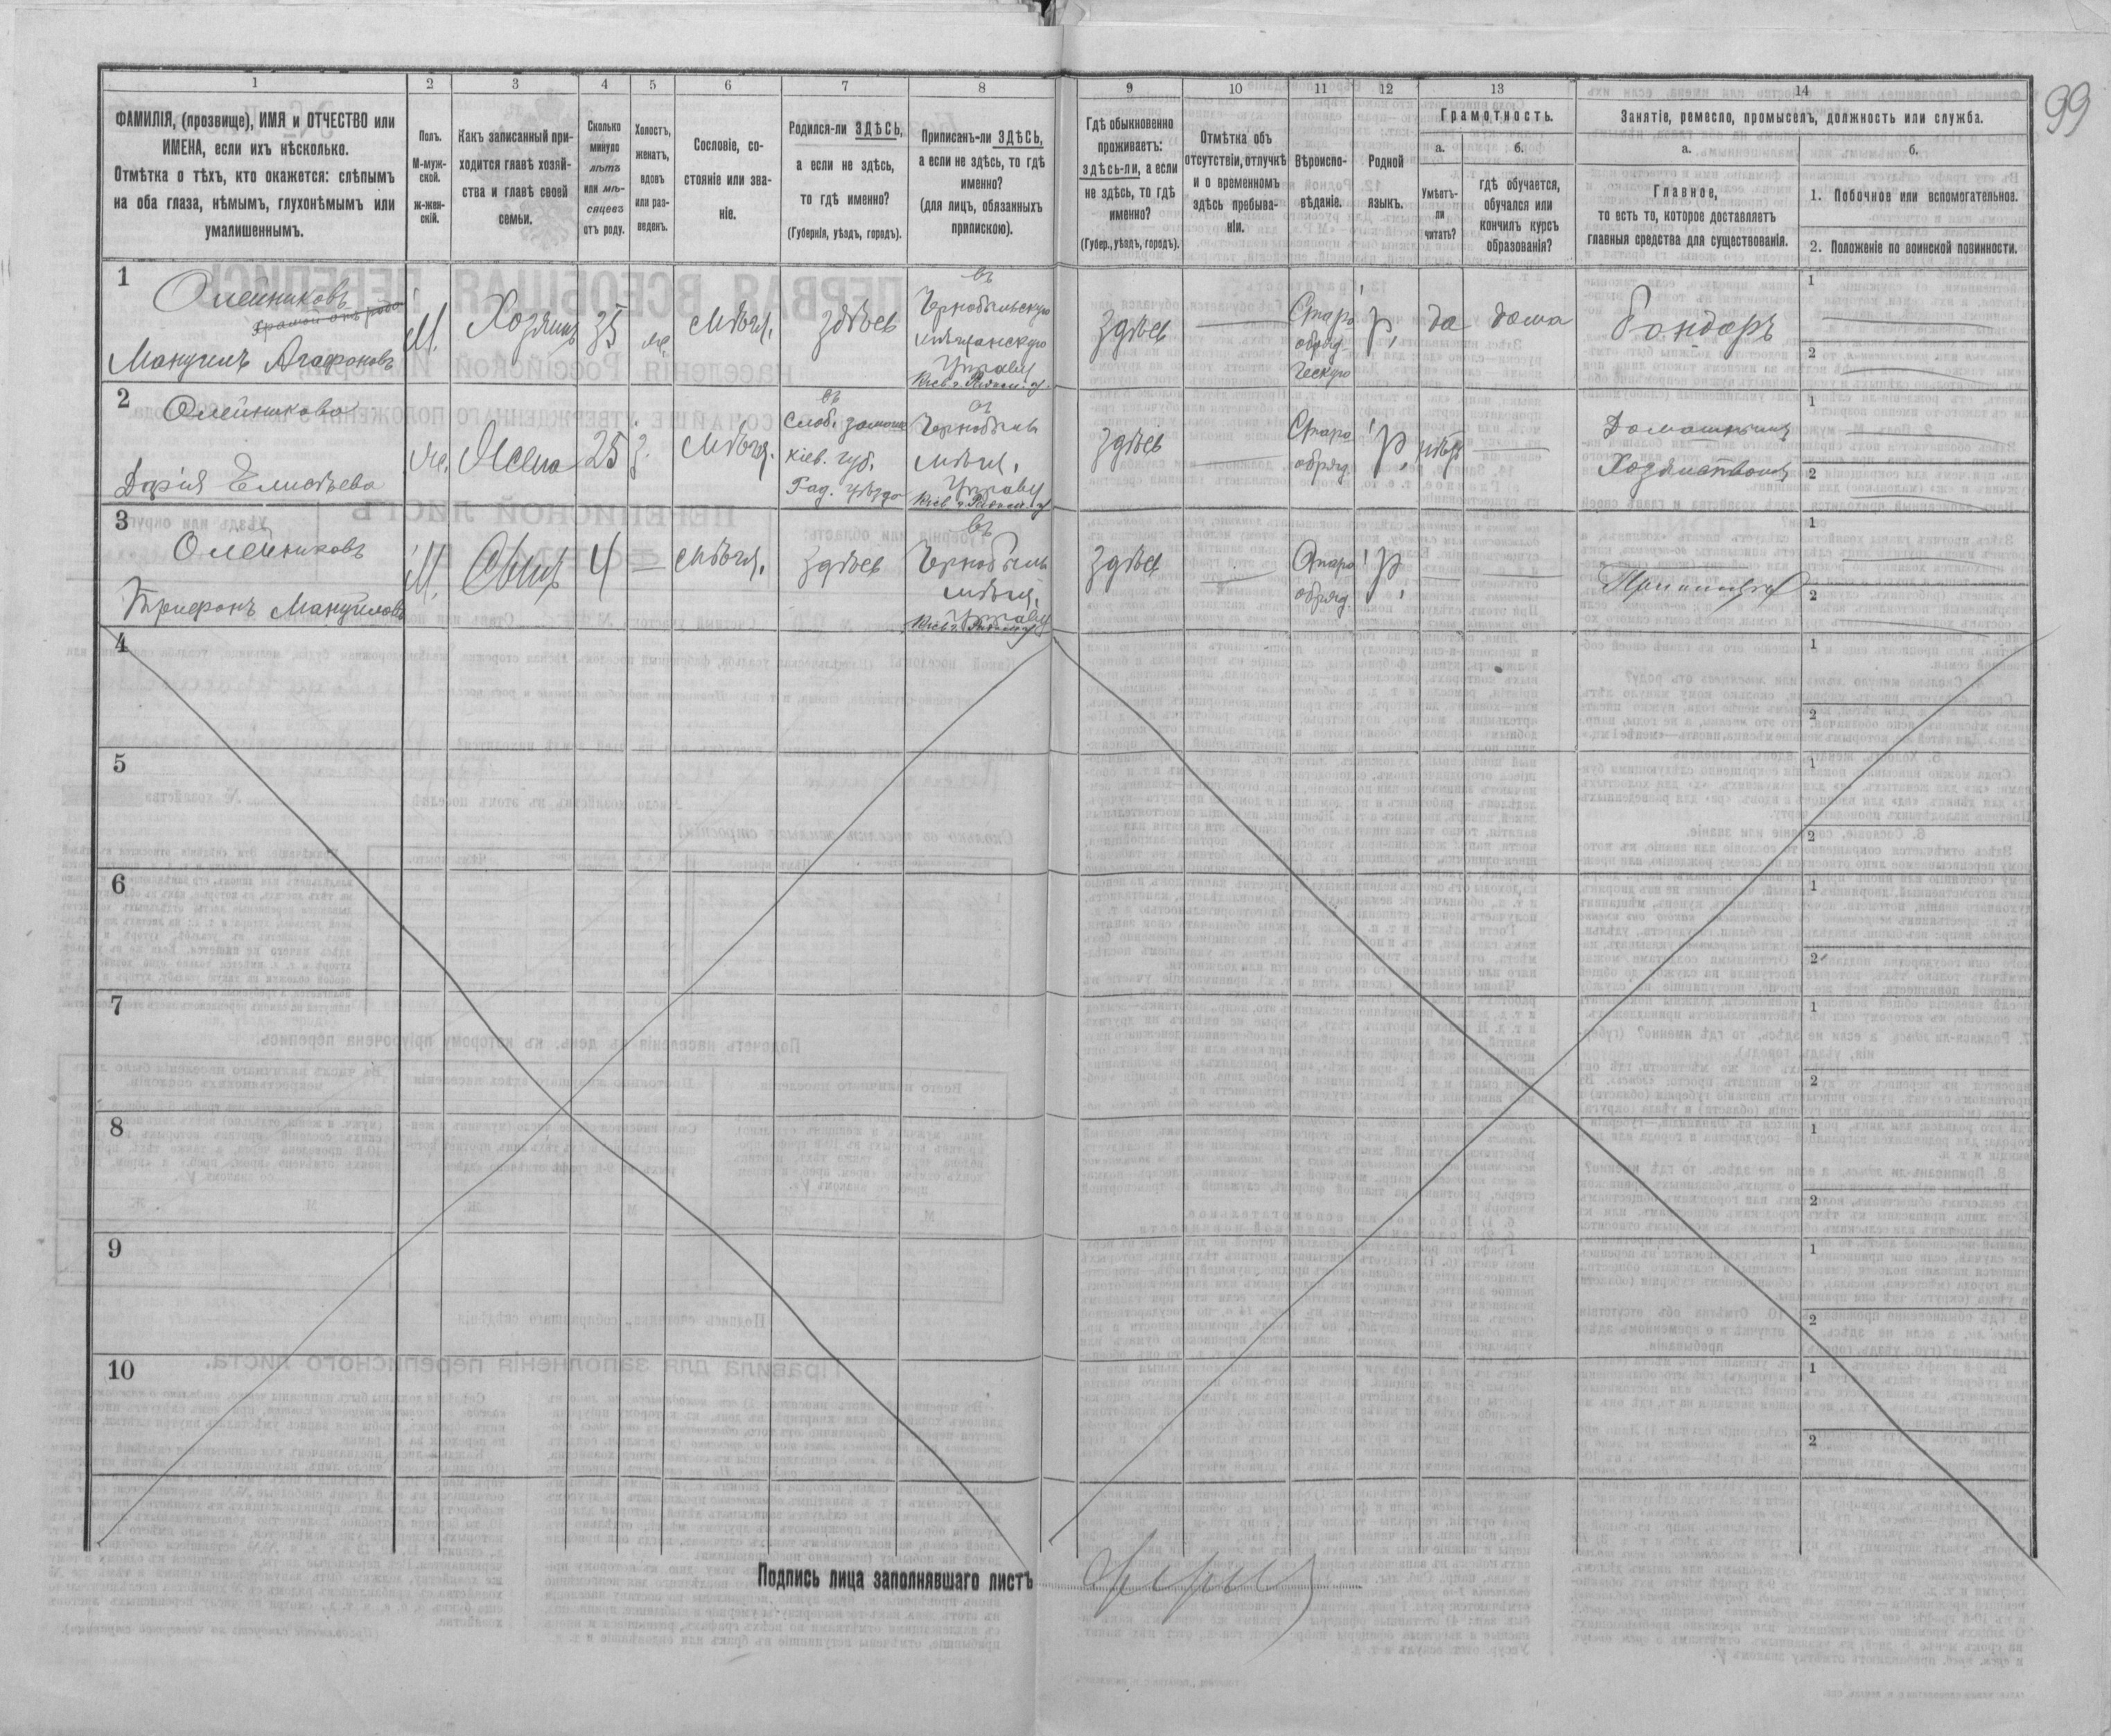 99
1 2 3 4 5 6 7 8 9 10 11 12 13 14
ФАМИЛІЯ, (прозвище), ИМЯ и ОТЧЕСТВО или
ИМЕНА, если ихъ нѣсколько.
Отмѣтка о тѣхъ, кто окажется: слѣпымъ
на оба глаза, нѣмымъ, глухонѣмымъ или
умалишеннымъ.
Полъ.
М-муж-
ской.
ж-жен-
скій.
Какъ записанный при-
ходится главѣ хозяй-
ства и главѣ своей
семьи.
Сколько
минуло
лѣтъ
или мѣ-
сяцевъ
отъ роду.
Холостъ,
женатъ,
вдовъ
или раз-
веденъ.
Сословіе, со-
стояніе или зва-
ніе.
Родился-ли ЗДѢСЬ,
а если не здѣсь,
то гдѣ именно?
(Губернія, уѣздъ, городъ).
Приписанъ-ли ЗДѢСЬ,
а если не здѣсь, то гдѣ
именно?
(для лицъ, обязанныхъ
припискою).
Гдѣ обыкновенно
проживаетъ:
здѣсь-ли, а если
не здѣсь, то гдѣ
именно?
(Губер., уѣздъ, городъ).
Отмѣтка объ
отсутствіи, отлучкѣ
и о временномъ
здѣсь пребыва-
ніи.
Вѣроиспо-
вѣданіе.
Родной
языкъ.
Грамотность.
а.
Умѣетъ-
ли
читать?
б.
гдѣ обучается,
обучался или
кончилъ курсъ
образованія?
Занятіе, ремесло, промыселъ, должность или служба.
а.
Главное,
то есть то, которое доставляетъ
главныя средства для существованія.
б.
1. Побочное или вспомогательное.
2. Положеніе по воинской повинности.
1
Олейниковъ
Мануилъ Агафоновъ
М.
Хозяинъ
35
же.
Мѣщ.
здѣсь
въ
Чернобыльскую
мѣщанскую
Управу
Кіев. г. Радом. у.
здѣсь
Старо
обряд-
ческую
р.
да
дома
Бондарь
1
2
2
Олейникова
Дарія Елисѣева
Же.
Жена
25
з.
Мѣщ.
въ
Слоб. замош
Кіев. губ.
Рад. уѣзда
въ
Чернобыль
мѣщ.
Управу
Кіев. г. Радом. у.
здѣсь
Старо
обряд.
р.
нѣтъ
Домашнимъ
Хозяйствомъ
1
2
3
Олейниковъ
Трифонъ Мануиловъ
М.
Сынъ
4
Мѣщ.
здѣсь
въ
Чернобыль
мѣщ.
Управу
Кіев. г. Радом. у.
здѣсь
Старо
обряд.
р.
При отцѣ
1
2
4
1
2
5
1
2
6
1
2
7
1
2
8
1
2
9
1
2
10
1
2
Подпись лица заполнявшаго листъ